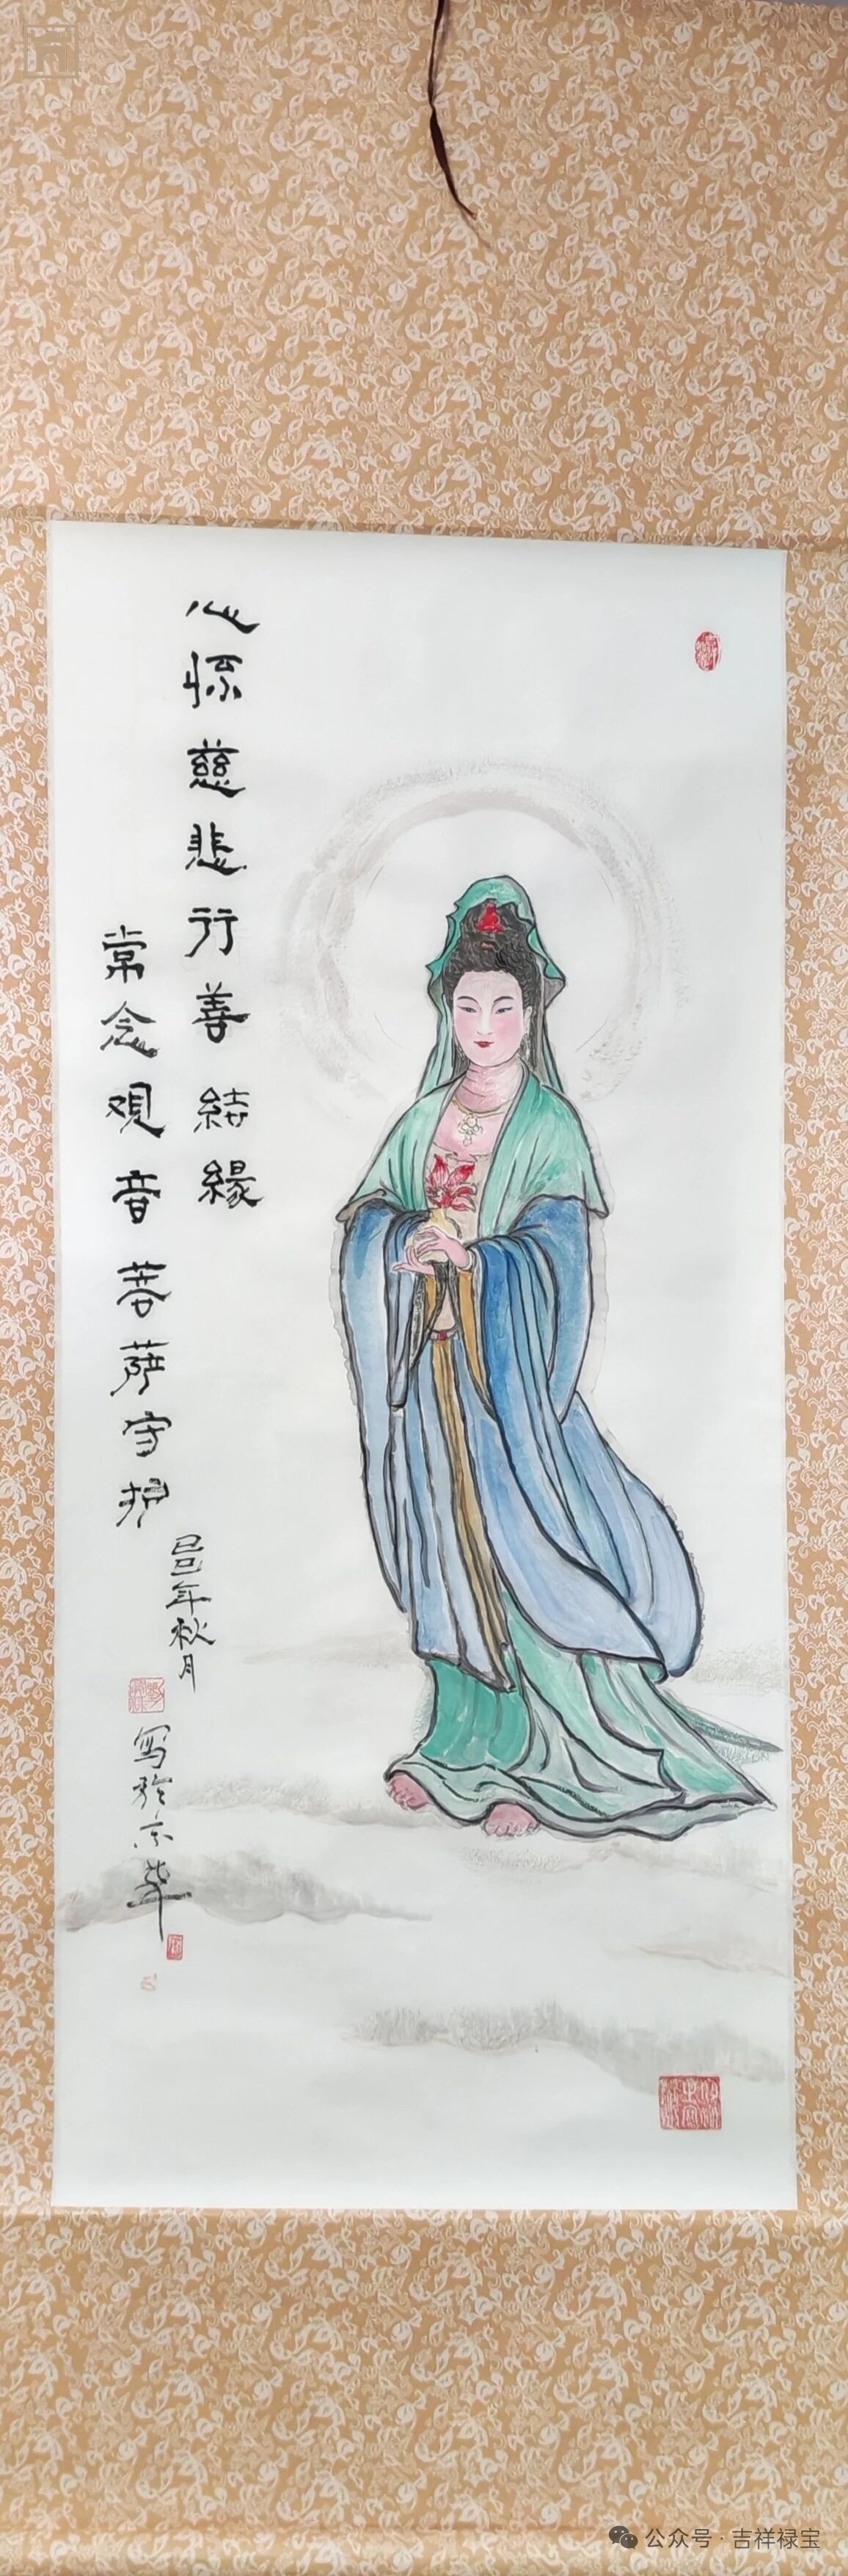 心怀慈悲行善結緣
常念观音菩萨守护
己巳年秋月
写於京華
公众号·吉祥禄宝